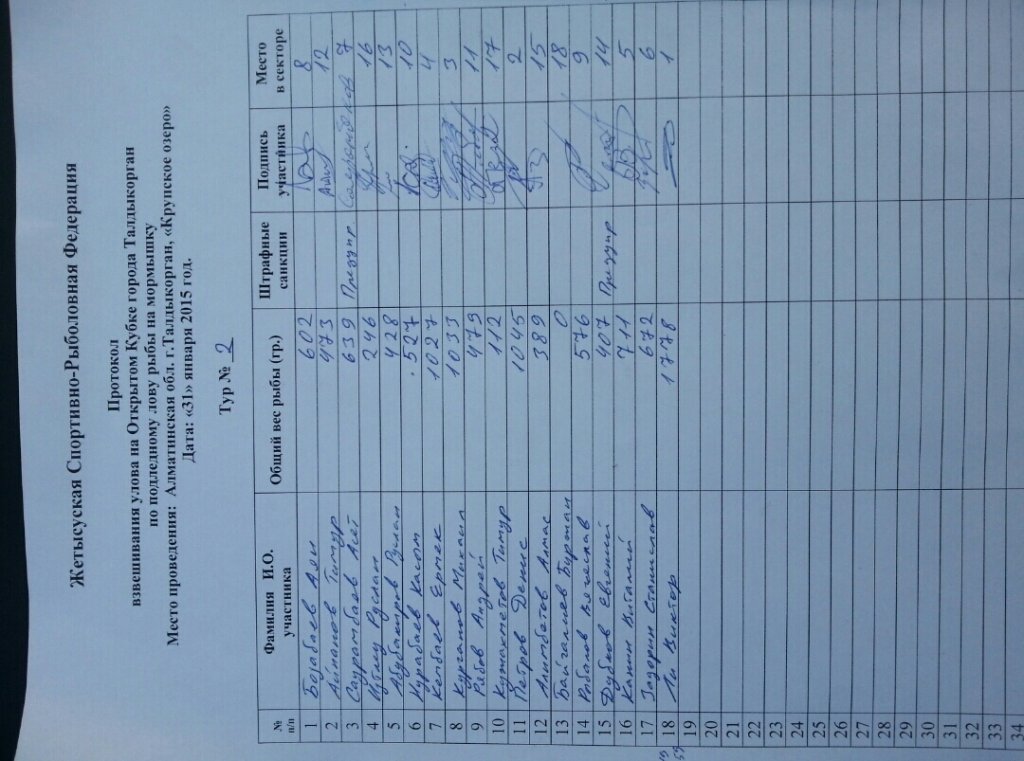 Жетысуская Спортивно-Рыболовная Федерация
Протокол
взвешивания улова на Открытом Кубке города Талдыкорган
по подледному лову рыбы на мормышку
Место проведения: Алматинская обл. г.Талдыкорган, «Крупское озеро»
Дата: «31» января 2015 год.
Тур № 2
№ п/п Фамилия И.О. участника Общий вес рыбы (гр.) Штрафные санкции Подпись участника Место в секторе
1 Бозабаев 602 8
2 Тимур 473 12
3 Саурамбаев Асет 639 7
4 Руслан 246 16
5 Абубакиров Руслан 428 13
6 Касым 527 10
7 Ермек 1027 4
8 Курганов Михаил 1033 3
9 Рябов Андрей 479 11
10 Тимур 112 17
11 Петров Денис 1045 2
12 Алмас 389 15
13 Байгалиев Буржан 0 18
14 Рыбалов Вячеслав 576 9
15 Дубков Евгений 407 14
16 Канин Виталий 711 5
17 Задорин Станислав 672 6
18 Ли Виктор 1778 1
19
20
21
22
23
24
25
26
27
28
29
30
31
32
33
34